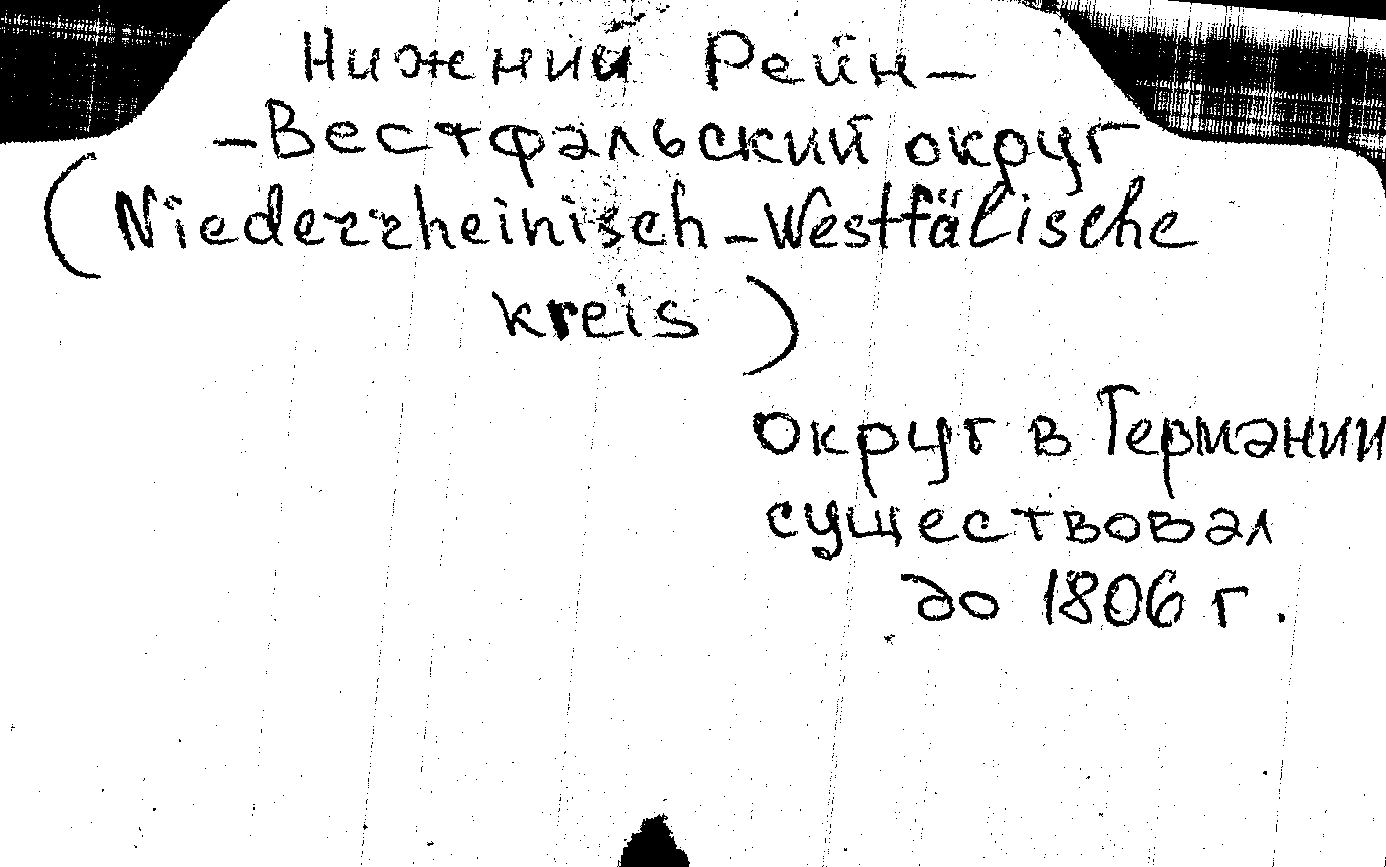 Нижний Рейн-
-Вестфальский округ
(Niederrheinisch-Westfälische
kreis)
Округ в Германии
существовал
до 1806 г.